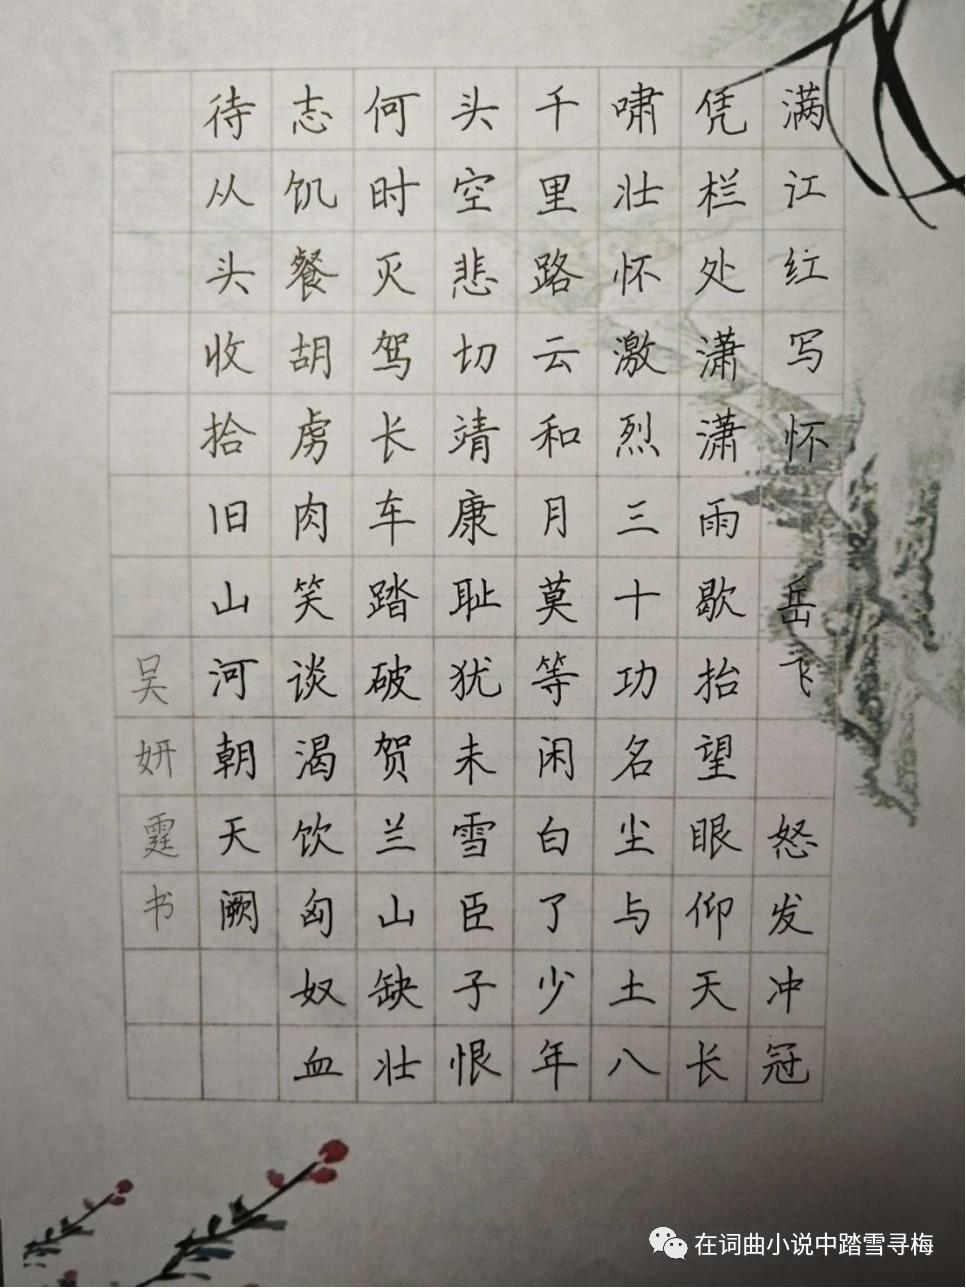 满江红写怀 岳飞 怒发冲冠
凭栏处潇潇雨歇抬望眼仰天长
啸壮怀激烈三十功名尘与土八
千里路云和月莫等闲白了少年
头空悲切靖康耻犹未雪臣子恨
何时灭驾长车踏破贺兰山缺壮
志饥餐胡虏肉笑谈渴饮匈奴血
待从头收拾旧山河朝天阙
吴妍霆书
在词曲小说中踏雪寻梅